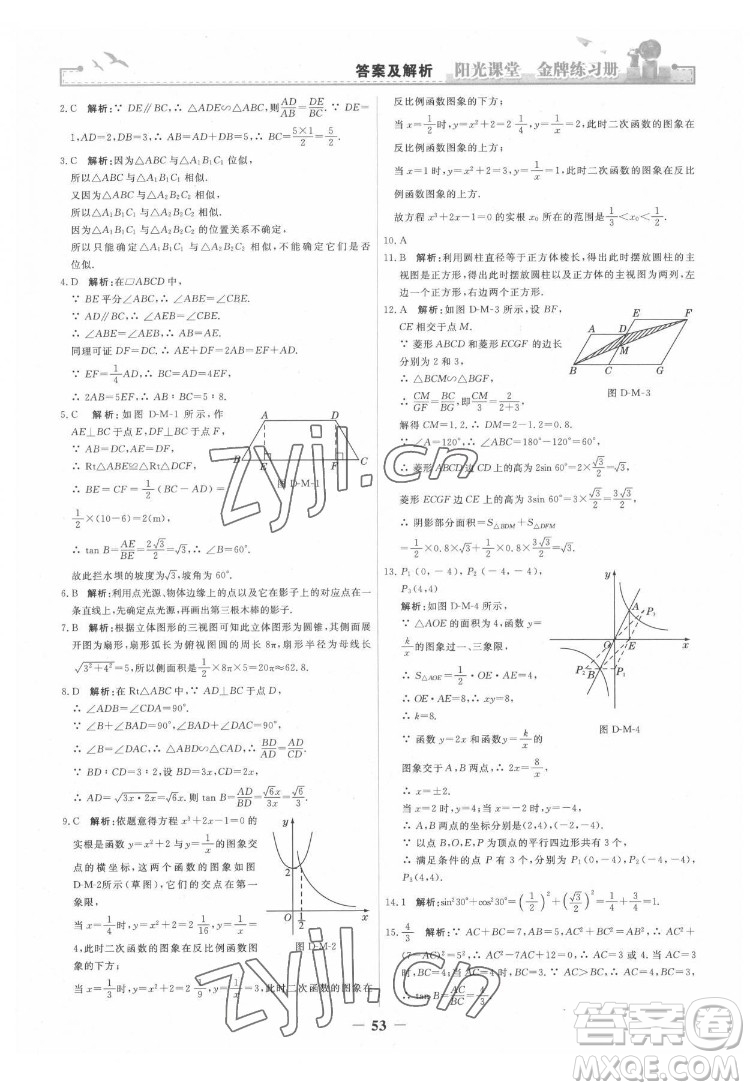 答案及解析 阳光课堂 金牌练习册
2. C 解析:∵ DE∥BC,∴ △ADE∽△ABC,∴ AD/AB=DE/BC. ∵ DE=
1,AD=2,DB=3,∴ AB=AD+DB=5,∴ BC=5×1/2=5/2.
3. C 解析:因为△ABC 与△A₁B₁C₁ 位似,
所以△ABC 与△A₁B₁C₁ 相似.
又因为△ABC 与△A₂B₂C₂ 相似,
所以△A₁B₁C₁ 与△A₂B₂C₂ 相似.
因为△ABC 与△A₂B₂C₂ 的位置关系不确定,
所以只能确定△A₁B₁C₁ 与△A₂B₂C₂ 相似,不能确定它们是否
位似.
4. D 解析:在□ABCD 中,
∵ BE 平分∠ABC,∴ ∠ABE=∠CBE.
∵ AD∥BC,∴ ∠AEB=∠CBE,
∴ ∠ABE=∠AEB,∴ AB=AE.
同理可证 DF=DC. ∵ AB=DC,∴ AE=DF.
∵ EF=1/4 AD,∴ EF=1/4 BC=2.
∴ 2AB=AE+DF=AD+EF=10,∴ AB=5.
∴ AB∶BC=5∶8.
5. C 解析:如图 D-M-1 所示,作
AE⊥BC 于点 E,DF⊥BC 于点 F,
∴ Rt△ABE≌Rt△DCF,
∴ BE=CF=1/2(BC-AD)=
1/2×(10-6)=2(m),
∴ tan B=AE/BE=2√3/2=√3,∴ ∠B=60°.
故此拦水坝的坡度为√3,坡角为 60°.
A D B E F C
图 D-M-1
6. B 解析:利用点光源、物体边缘上的点以及它在影子上的对应点在一
条直线上,先确定点光源,再画出第三根木棒的影子.
7. B 解析:根据立体图形的三视图可知此立体图形为圆锥,其侧面展
开图为扇形,扇形弧长为俯视图圆的周长 8π,扇形半径为母线长
√3²+4²=5,所以侧面积是1/2×8π×5=20π≈62.8.
8. D 解析:在 Rt△ABC 中,∵ AD⊥BC 于点 D,
∴ ∠ADB=∠CDA=90°,
∵ ∠B+∠BAD=90°,∠BAD+∠DAC=90°,
∴ ∠B=∠DAC,∴ △ABD∽△CAD,∴ DB/AD=AD/CD.
∵ BD∶CD=3∶2,设 BD=3x,CD=2x.
∴ AD=√3x·2x=√6x,则 tan B=AD/BD=√6x/3x=√6/3.
9. C 解析:依题意得方程 x³+2x-1=0 的
实根是函数 y=x²+2 与 y=1/x 的图象交
点的横坐标,这两个函数的图象如图
D-M-2所示(草图),它们的交点在第一
象限,
当 x=1/4 时,y=x²+2=2 1/16,y=1/x=
4,此时二次函数的图象在反比例函数图
象的下方;
当 x=1/3 时,y=x²+2=2 1/9,y=1/x=3,此时二次函数的图象在
y 2 O 1/2 x
图 D-M-2
反比例函数图象的下方;
当 x=1/2 时,y=x²+2=2 1/4,y=1/x=2,此时二次函数的图象在
反比例函数图象的上方;
当 x=1 时,y=x²+2=3,y=1/x=1,此时二次函数的图象在反比
例函数图象的上方.
故方程 x³+2x-1=0 的实根 x₀ 所在的范围是1/3<x₀<1/2.
10. A
11. B 解析:利用圆柱直径等于正方体棱长,得出此时摆放圆柱的主
视图是正方形,得出此时摆放圆柱及正方体的主视图为两列,左边
两个正方形,右边两个正方形.
12. A 解析:如图 D-M-3 所示,设 BF,
CE 相交于点 M.
∵ 菱形 ABCD 和菱形 ECGF 的边长
分别为 2 和 3,
∴ △BCM∽△BGF,
∴ CM/GF=BC/BG,即CM/3=2/2+3,
解得 CM=1.2,∴ DM=2-1.2=0.8.
∵ ∠A=120°,∴ ∠ABC=180°-120°=60°,
∴ 菱形 ABCD 边 CD 上的高为 2sin 60°=2×√3/2=√3,
菱形 ECGF 边 CE 上的高为 3sin 60°=3×√3/2=3√3/2,
∴ 阴影部分面积=S△BDM+S△DFM
=1/2×0.8×√3+1/2×0.8×3√3/2=√3.
A D E F M B C G
图 D-M-3
13. P₁(0,-4),P₂(-4,-4),
P₃(4,4)
解析:如图 D-M-4 所示,
∵ △AOE 的面积为 4,函数 y=
k/x 的图象过一、三象限,
∴ S△AOE=1/2·OE·AE=4,
∴ OE·AE=8,∴ xy=8,
∴ k=8.
∵ 函数 y=2x 和函数 y=k/x 的
图象交于 A,B 两点,∴ 2x=8/x,
∴ x=±2.
∴ A,B 两点的坐标分别是(2,4),(-2,-4).
∵ 以点 B,O,E,P 为顶点的平行四边形共有 3 个,
∴ 满足条件的点 P 有 3 个,分别为 P₁(0,-4),P₂(-4,-4),
P₃(4,4).
y A P₃ O E x P₂ B P₁
图 D-M-4
14. 1 解析:sin²30°+cos²30°=(1/2)²+(√3/2)²=1/4+3/4=1.
15. 4/3 解析:∵ AC+BC=7,∴ BC=7-AC. ∵ AC²+BC²=AB²,∴ AC²+
(7-AC)²=5²,∴ AC²-7AC+12=0,∴ AC=3 或 AC=4. 当 AC=3
时,BC=4;当 AC=4 时,BC=3. ∵ AC>BC,∴ AC=4,BC=3,
∴ tan B=AC/BC=4/3.
53
zyjl.cn
zyjl.cn
答案圈
MXQE.COM